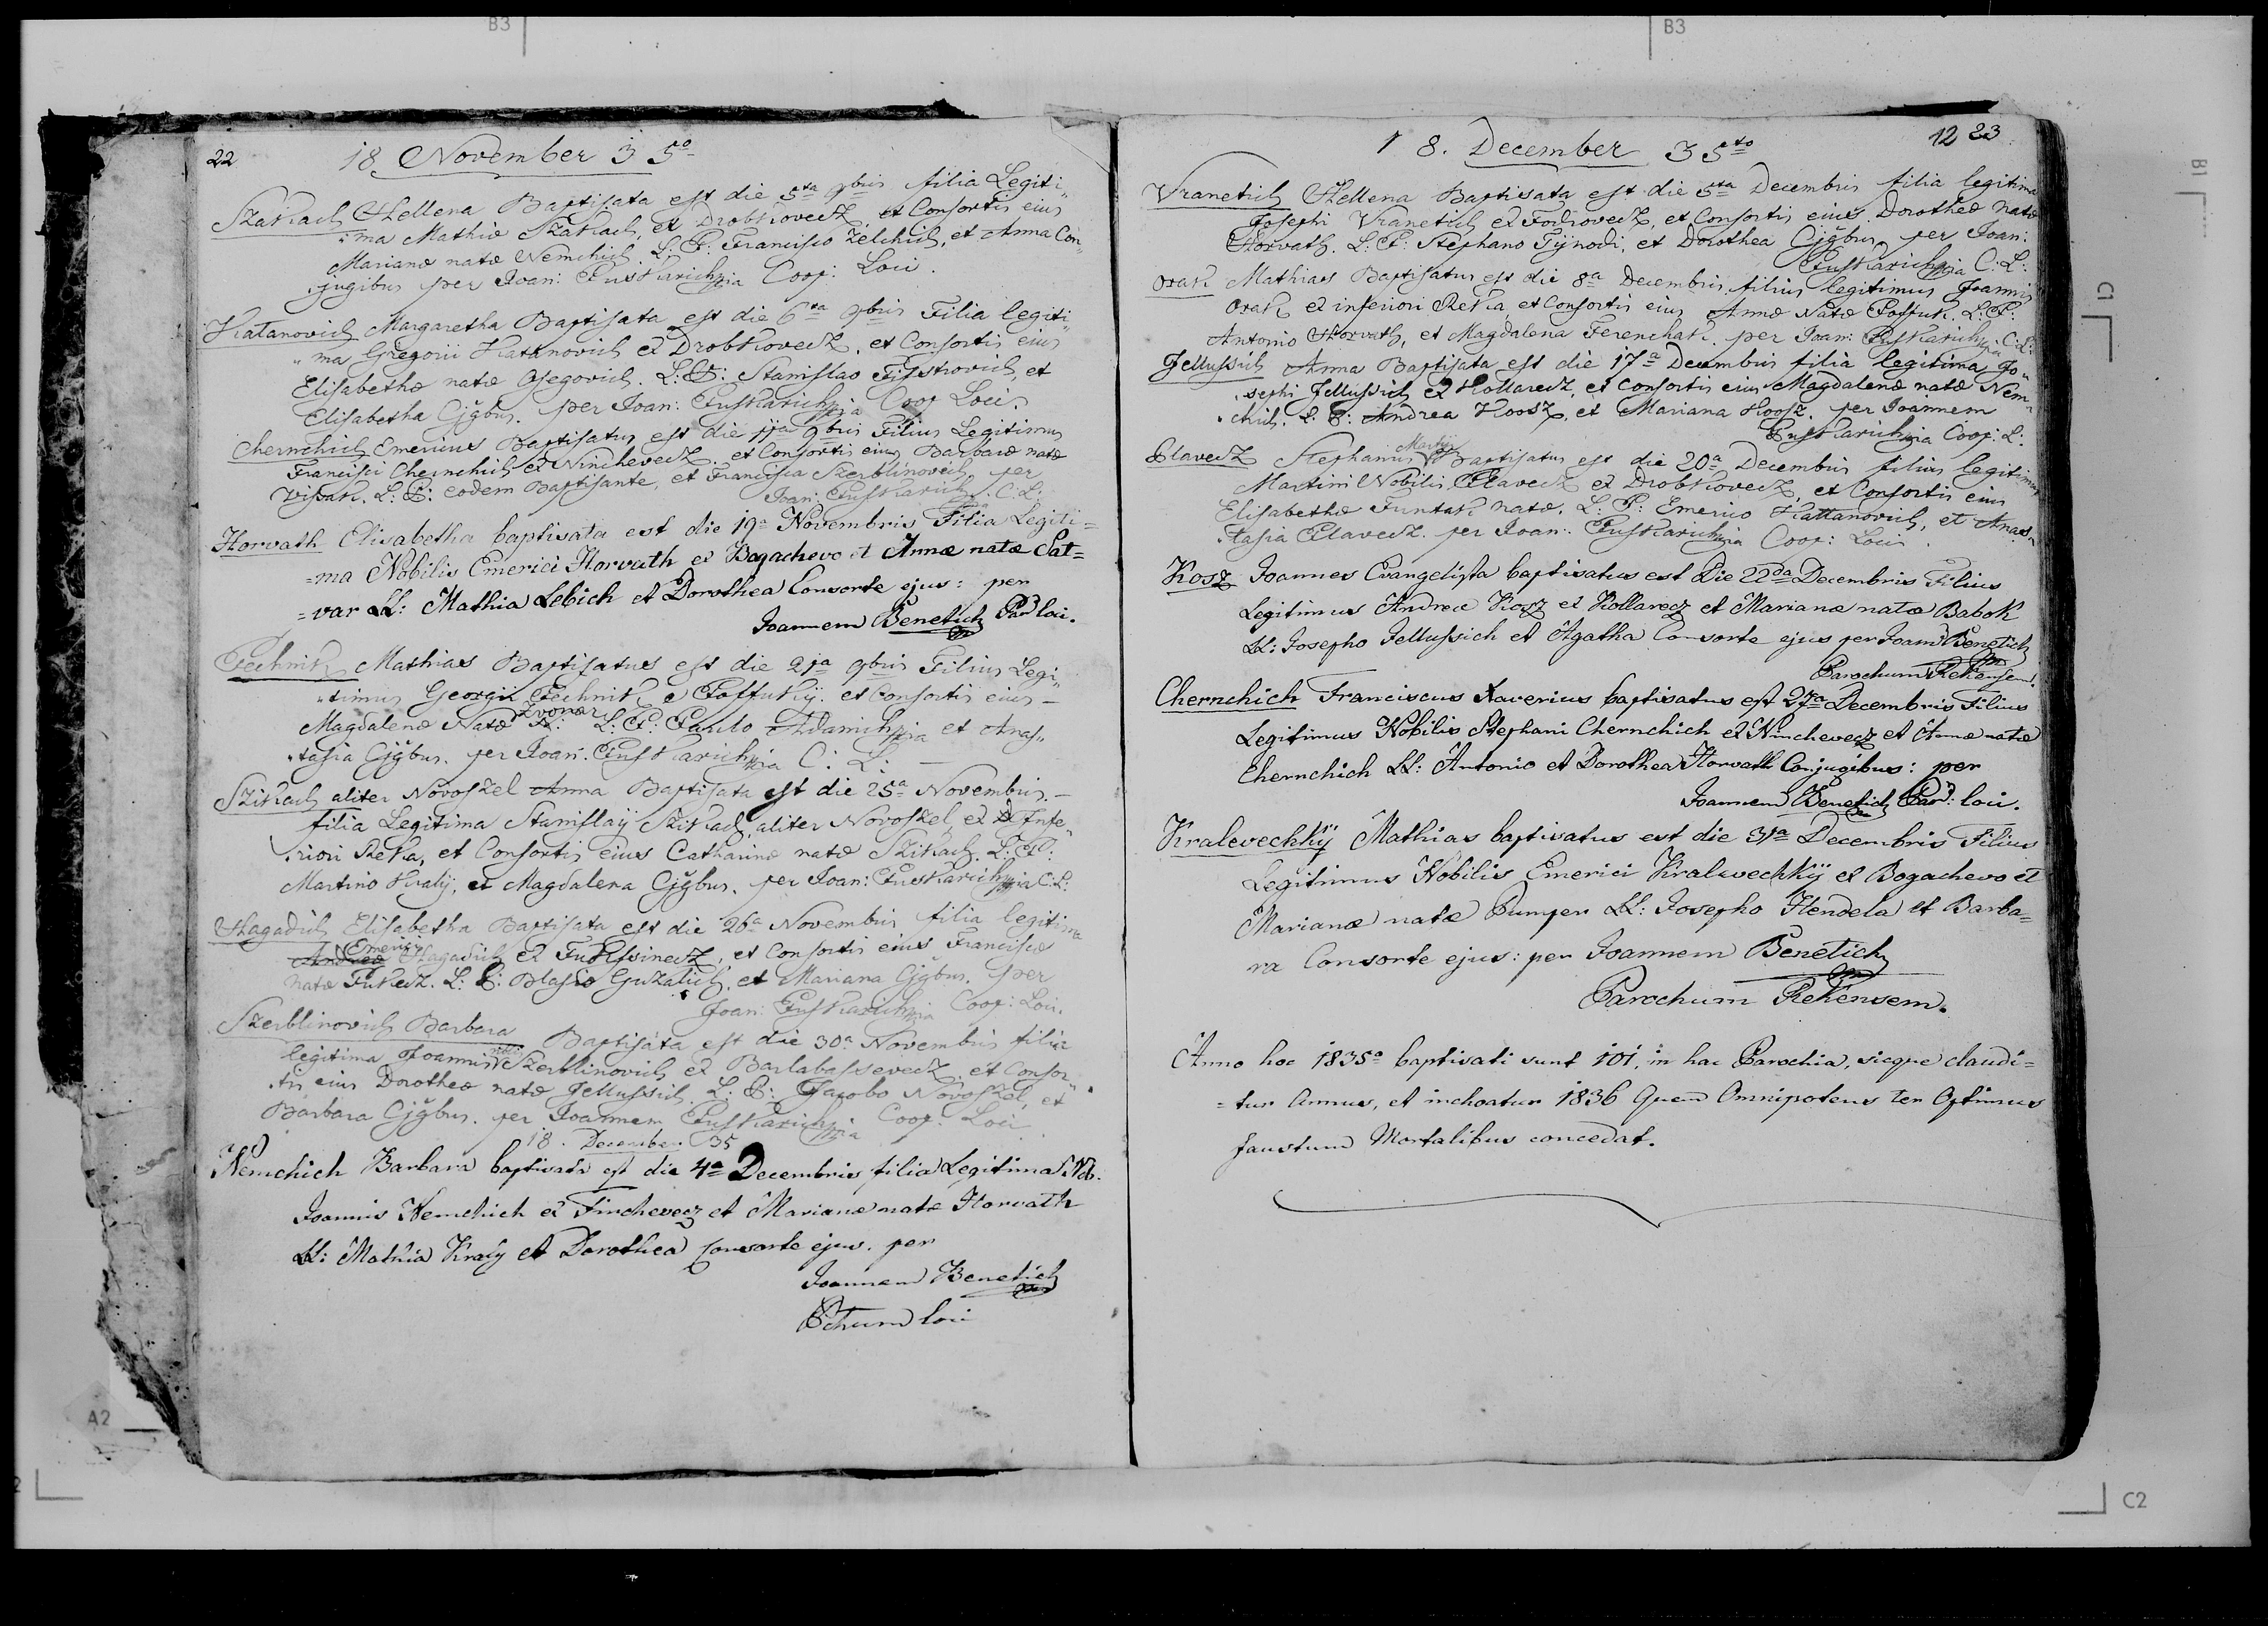 22
18 November 35º
Szakach Hellena Baptisata est die 5ta 9bris filia Legiti„
„ma Mathiæ Szakach, ex Drobkovecz, et Consortis eius
Marianæ natæ Nemchich. L: P: Francisco Zelchich, et Anna Con„
„jugibus per Joan: Puskarich mpia Coop: Loci.
Katanovich Margaretha Baptisata est die 6ta 9bris Filia legiti„
„ma Gregorii Katanovich ex Drobkovecz, et Consortis eius
Elisabethæ natæ Gsegovich. L: P: Stanislao Fistrovich, et
Elisabetha Cjgbus. per Joan: Puskarich mpia Coop Loci.
Chernchich Emericus Baptisatus est die 11a 9bris Filius Legitimus
Francisci Chernchich ex Ninchevecz, et Consortis eius Barbaræ natæ
Vissak. L: P: eodem Baptisante, et Francisca Szerblinovich, per
Joan: Puskarich C: L:
Horvath Elisabetha baptisata est die 19a Novembris Filia Legiti=
=ma Nobilis Emerici Horvath ex Bogachevo et Annæ natæ Sat=
=var LL: Mathia Lebich et Dorothea Consorte ejus: per
Joannem Benetich Par loci.
Pechnik Mathias Baptisatus est die 21a 9bris Filius Legi„
„timus Georgii Pechnik e Possuky. et Consortis eius –
Magdalenæ Natæ Zvonar L: P: Paulo Adamich mpia et Anas„
„tasia Cjgbus. per Joan: Puskarich mpia C: L: —
Szikach aliter Novoszel Anna Baptisata est die 25a Novembris. –
filia Legitima Stanislaij Szikach, aliter Novoszel, ex Infe„
„riori Reka, et Consortis eius Catharinæ natæ Szikach. L: P:
Martino Kraly, et Magdalena Cjgbus. per Joan: Puskarich mpia C: L:
Hagadich Elisabetha Baptisata est die 26a Novembris filia legitima
Andreæ Emerici Hagadich ex Fukssinecz, et Consortis eius Franciscæ
natæ Fukecz. L: P: Blasio Guzalich, et Mariana Cjgbus. per
Joan: Puskarich mpia Coop: Loci.
Szerblinovich Barbara Baptisata est die 30a Novembris filia
legitima Joannis Szerblinovich ex Barlabassevecz, et Consor„
„tis eius Dorotheæ natæ Jellussich. L: P: Jacobo Novoszel, et
Barbara Cjgbus. per Joannem Puskarich mpia Coop: Loci
18. December 35
Nemchich Barbara baptisata est die 4a Decembris filia Legitima Nob.
Joannis Nemchich ex Finchevecz et Marianæ natæ Horvath
LL: Mathia Kraly et Dorothea Consorte ejus. per
Joannem Benetich
Pchum loci
18. December 35to
12 23
Vranetich Hellena Baptisata est die 5ta Decembris filia legitima
Josephi Vranetich ex Fodrovecz, et Consortis eius Dorotheæ natæ
Horvath. L: P: Stephano Tijnodi, et Dorothea Cjgbus per Joan:
Puskarich mpia C: L:
Orak Mathias Baptisatus est die 8a Decembris filius legitimus Joannis
Orak ex inferiori Reka, et Consortis eius Annæ Natæ Possuk. L: P:
Antonio Horvath, et Magdalena Ferenchak. per Joan: Puskarich mpia C: L:
Jellussich Anna Baptisata est die 17a Decembris filia legitima Jo„
„sephi Jellussich ex Kollarecz, et Consortis eius Magdalenæ natæ Nem„
„chich. L: P: Andrea Koosz, et Mariana Koosz. per Joannem
Puskarich mpia Coop: L:
Plavecz Stephanus Martyr Baptisatus est die 20a Decembris filius legitimus
Martini Nobilis Plavecz ex Drobkovecz, et Consortis eius
Elisabethæ Funtak natæ. L: P: Emerico Kattanovich, et Anas„
„tasia Plavecz. per Joan: Puskarich mpia Coop: Loci.
Kosz Joannes Evangelista baptisatus est Die 22da Decembris Filius
Legitimus Andreæ Kosz ex Kollarecz et Marianæ natæ Babok
LL: Josepho Jellussich et Agatha Consorte ejus per Joan: Benetich
Parochum Rekensem.
Chernchich Franciscus Xaverius baptisatus est 27a Decembris Filius
Legitimus Nobilis Stephani Chernchich ex Ninchevecz et Annæ natæ
Chernchich LL: Antonio et Dorothea Horvath Conjugibus: per
Joannem Benetich Par: loci.
Kralevechky Mathias baptisatus est die 31a Decembris Filius
Legitimus Nobilis Emerici Kralevechky ex Bogachevo et
Marianæ natæ Pumper LL: Josepho Hendela et Barba=
ra Consorte ejus: per Joannem Benetich
Parochum Rekensem.
Anno hoc 1835o baptisati sunt 101, in hac Parochia, sicque claudi=
=tur Annus, et inchoatur 1836 Quem Omnipotens ter Optimus
faustum Mortalibus concedat.
B3
B3
B1
C1
A2
C2